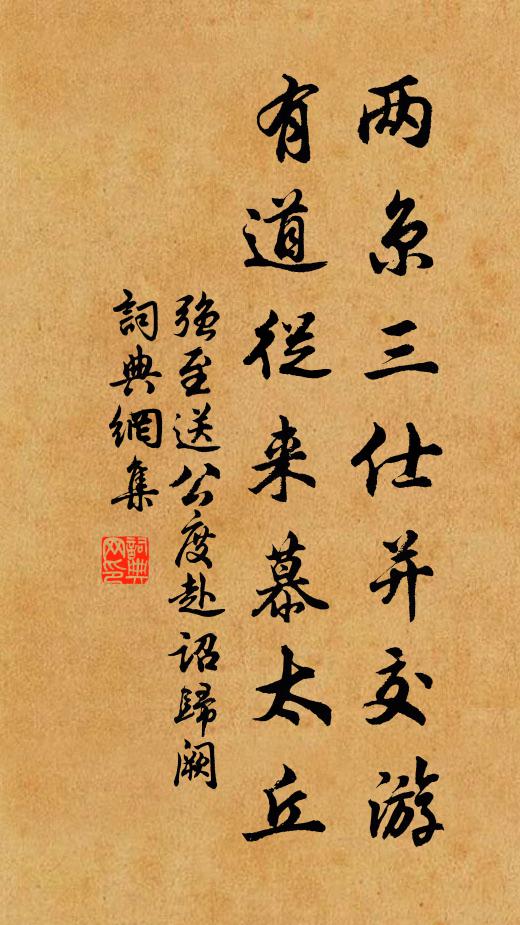 两京三仕并交游
有道從来慕太丘
强至送公度赴诏歸阙
詞典網集
詞典网印